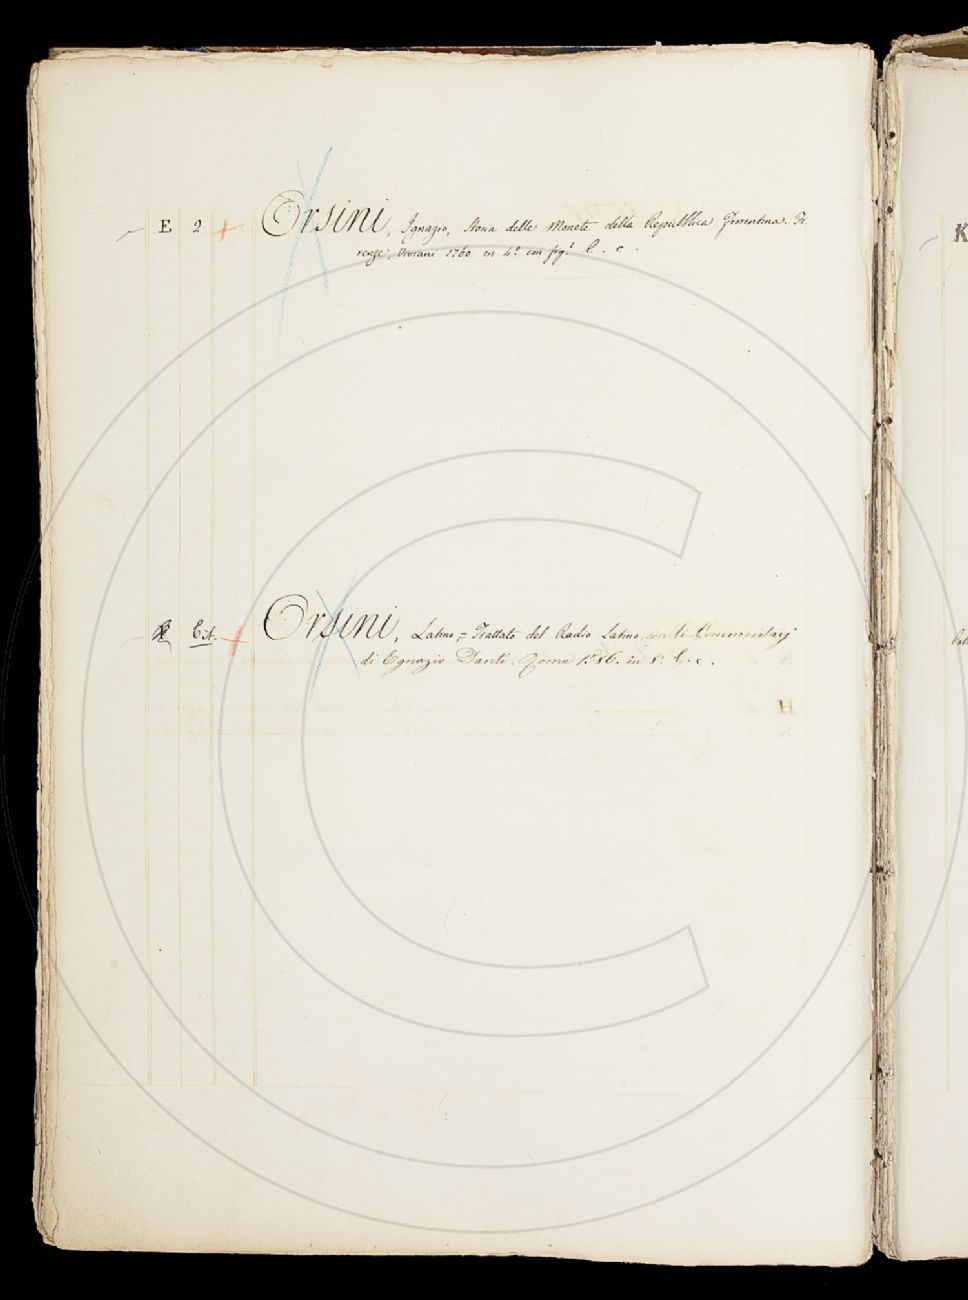 E 2 + Orsini, Ignazio, Storia delle Monete della Repubblica Fiorentina. Fi-
renze, Viviani 1760 in 4.° con fig.e l. c.
Cit. + Orsini, Latino = Trattato del Radio Latino, con li Commentarij
di Egnazio Danti. Roma 1586. in 8.° l. c.
H
K